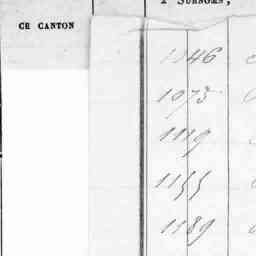 & SURNOMS,
CE CANTON
1046
1073
1119
1155
1189